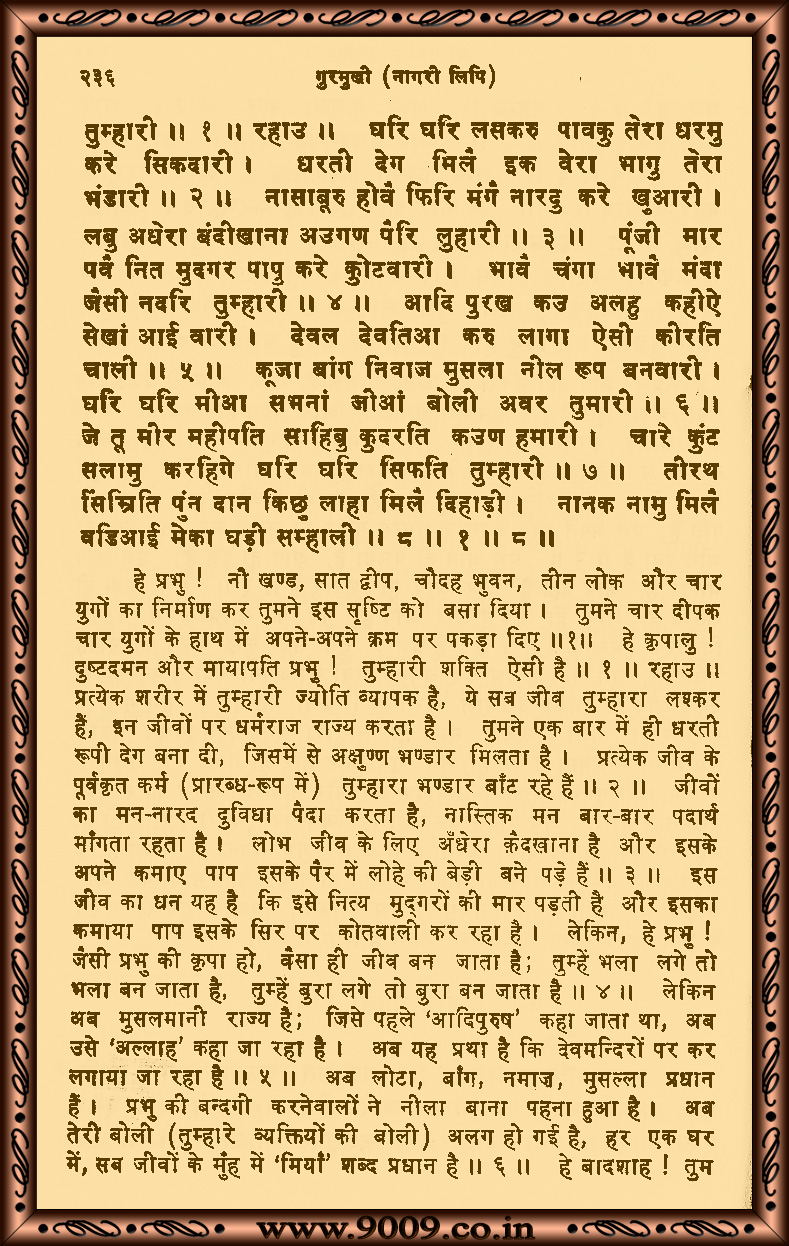 २३६ गुरमुखी (नागरी लिपि)
तुम्हारी ॥ १ ॥ रहाउ ॥ घरि घरि लसकरु पावकु तेरा धरमु
करे सिकदारी । धरती देग मिलै इक वेरा भागु तेरा
भंडारी ॥ २ ॥ नासाबूरु होवै फिरि मंगै नारदु करे खुआरी ।
लबु अधेरा बंदीखाना अउगण पैरि लुहारी ॥ ३ ॥ पूंजी मार
पवै नित मुदगर पापु करे कुोटवारी । भावै चंगा भावै मंदा
जैसी नदरि तुम्हारी ॥ ४ ॥ आदि पुरख कउ अलहु कहीऐ
सेखां आई वारी । देवल देवतिआ करु लागा ऐसी कीरति
चाली ॥ ५ ॥ कूजा बांग निवाज मुसला नील रूप बनवारी ।
घरि घरि मीआ सभनां जीआं बोली अवर तुमारी ॥ ६ ॥
जे तू मीर महीपति साहिबु कुदरति कउण हमारी । चारे कुंट
सलामु करहिगे घरि घरि सिफति तुम्हारी ॥ ७ ॥ तीरथ
सिंम्रिति पुंन दान किछु लाहा मिलै दिहाड़ी । नानक नामु मिलै
वडिआई मेका घड़ी सम्हाली ॥ ८ ॥ १ ॥ ८ ॥
हे प्रभु ! नौ खण्ड, सात द्वीप, चौदह भुवन, तीन लोक और चार
युगों का निर्माण कर तुमने इस सृष्टि को बसा दिया । तुमने चार दीपक
चार युगों के हाथ में अपने-अपने क्रम पर पकड़ा दिए ॥१॥ हे कृपालु !
दुष्टदमन और मायापति प्रभु ! तुम्हारी शक्ति ऐसी है ॥ १ ॥ रहाउ ॥
प्रत्येक शरीर में तुम्हारी ज्योति व्यापक है, ये सब जीव तुम्हारा लश्कर
हैं, इन जीवों पर धर्मराज राज्य करता है । तुमने एक बार में ही धरती
रूपी देग बना दी, जिसमें से अक्षुण्ण भण्डार मिलता है । प्रत्येक जीव के
पूर्वकृत कर्म (प्रारब्ध-रूप में) तुम्हारा भण्डार बाँट रहे हैं ॥ २ ॥ जीवों
का मन-नारद दुविधा पैदा करता है, नास्तिक मन बार-बार पदार्थ
माँगता रहता है । लोभ जीव के लिए अँधेरा क़ैदखाना है और इसके
अपने कमाए पाप इसके पैर में लोहे की बेड़ी बने पड़े हैं ॥ ३ ॥ इस
जीव का धन यह है कि इसे नित्य मुद्गरों की मार पड़ती है और इसका
कमाया पाप इसके सिर पर कोतवाली कर रहा है । लेकिन, हे प्रभु !
जैसी प्रभु की कृपा हो, वैसा ही जीव बन जाता है; तुम्हें भला लगे तो
भला बन जाता है, तुम्हें बुरा लगे तो बुरा बन जाता है ॥ ४ ॥ लेकिन
अब मुसलमानी राज्य है; जिसे पहले ‘आदिपुरुष’ कहा जाता था, अब
उसे ‘अल्लाह’ कहा जा रहा है । अब यह प्रथा है कि देवमन्दिरों पर कर
लगाया जा रहा है ॥ ५ ॥ अब लोटा, बाँग, नमाज़, मुसल्ला प्रधान
हैं । प्रभु की बन्दगी करनेवालों ने नीला बाना पहना हुआ है । अब
तेरी बोली (तुम्हारे व्यक्तियों की बोली) अलग हो गई है, हर एक घर
में, सब जीवों के मुँह में ‘मियाँ’ शब्द प्रधान है ॥ ६ ॥ हे बादशाह ! तुम
www.9009.co.in